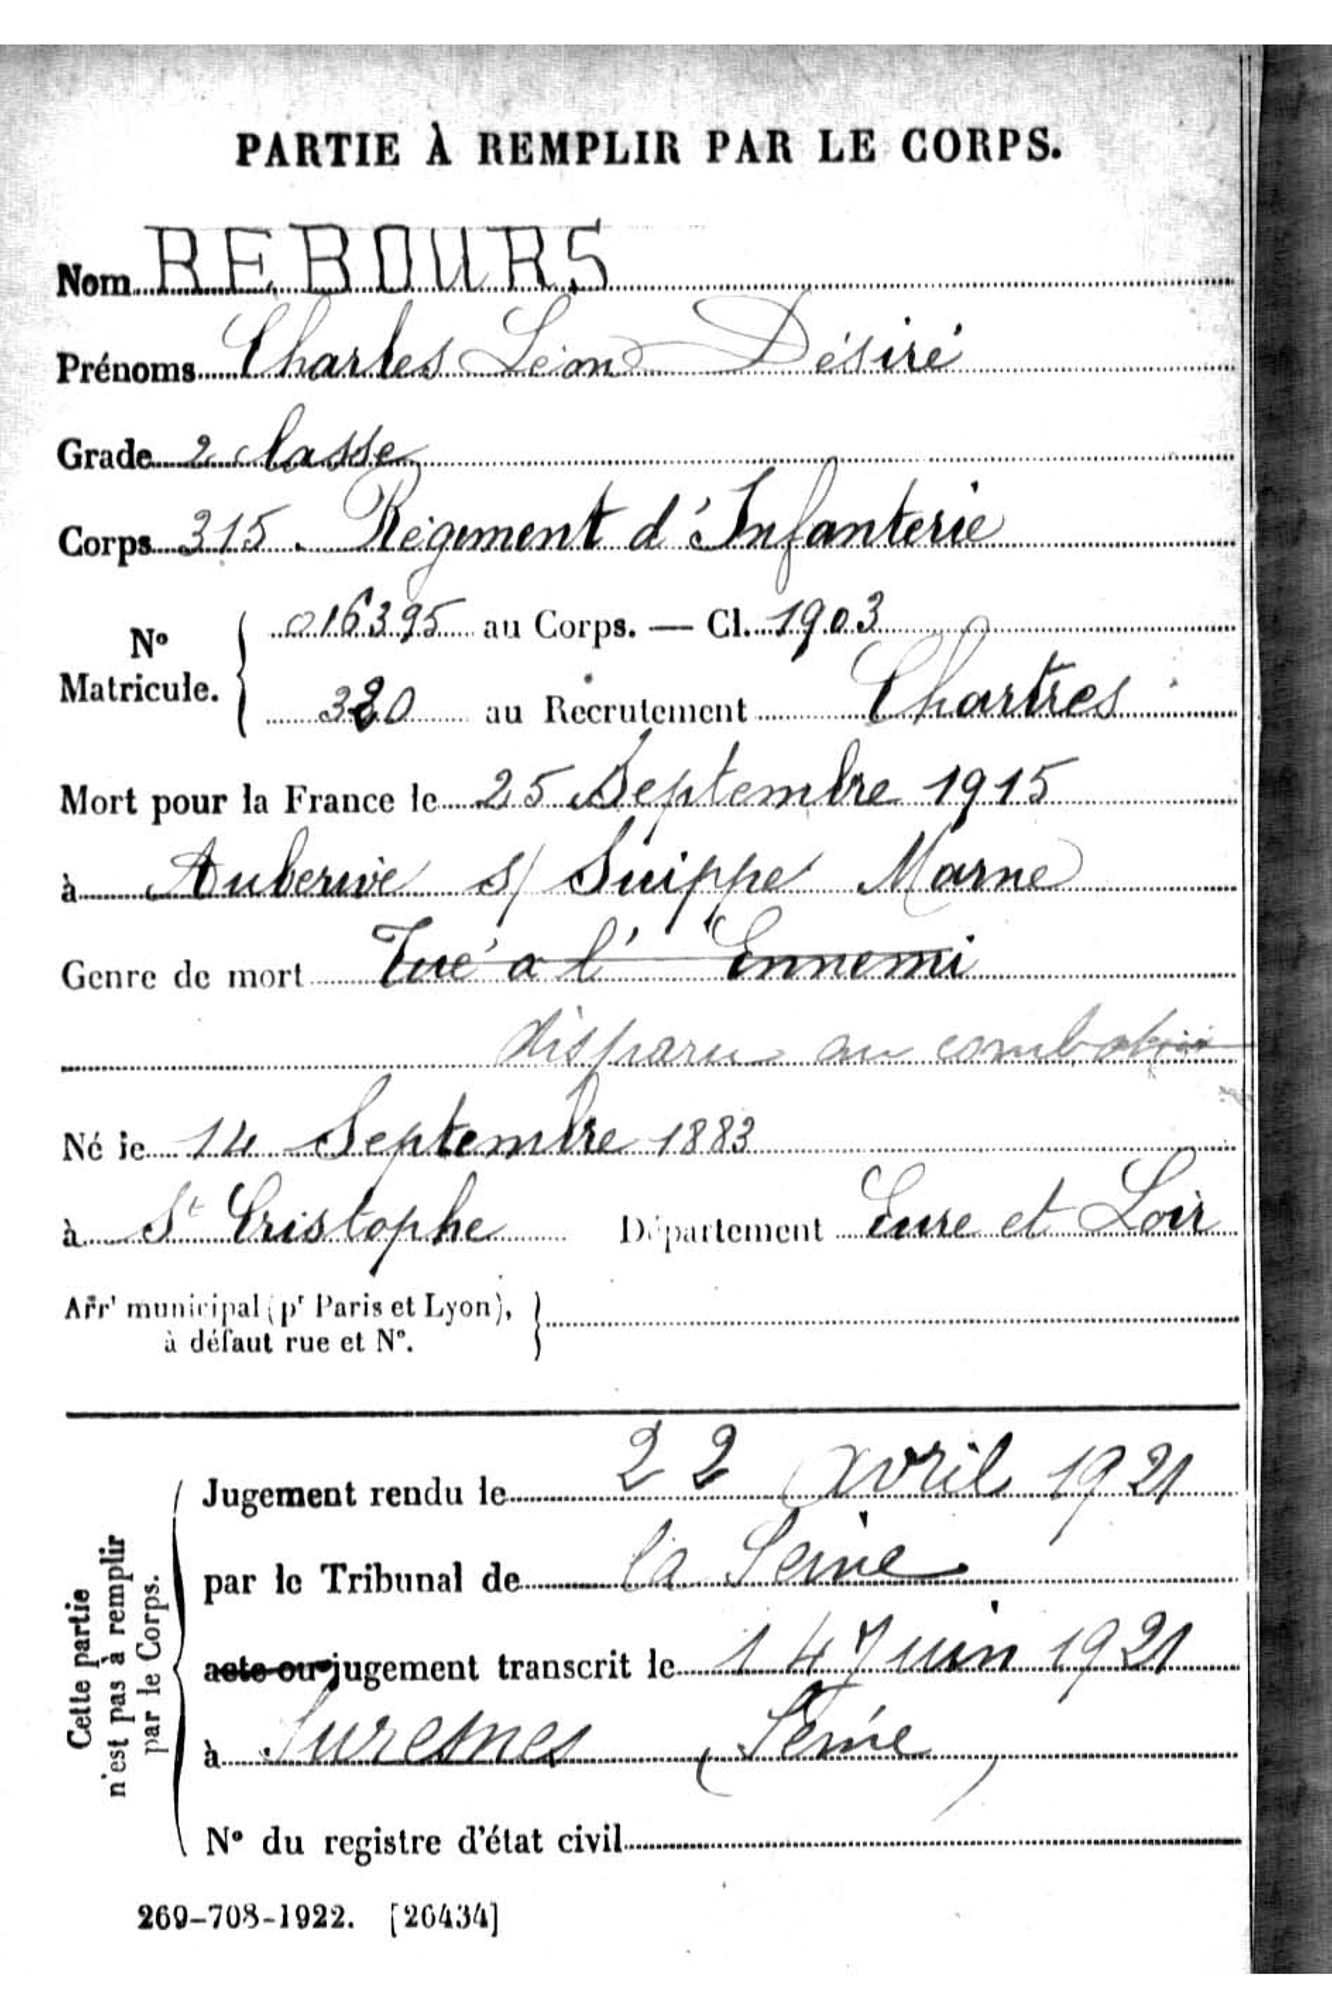 PARTIE À REMPLIR PAR LE CORPS.
Nom REBOURS
Prénoms Charles Léon Désiré
Grade 2 classe
Corps 315. Régiment d'Infanterie
N° Matricule. 016395 au Corps. — Cl. 1903
320 au Recrutement Chartres
Mort pour la France le 25 Septembre 1915
à Auberive s/ Suippe Marne
Genre de mort Tué a l'Ennemi
disparu au combat
Né le 14 Septembre 1883
à St Cristophe Département Eure et Loir
Arrt municipal (pr Paris et Lyon),
à défaut rue et N°.
Cette partie
n'est pas à remplir
par le Corps.
Jugement rendu le 22 avril 1921
par le Tribunal de la Seine
acte ou jugement transcrit le 14 Juin 1921
à Suresnes (Seine)
N° du registre d'état civil
269-708-1922. [26434]